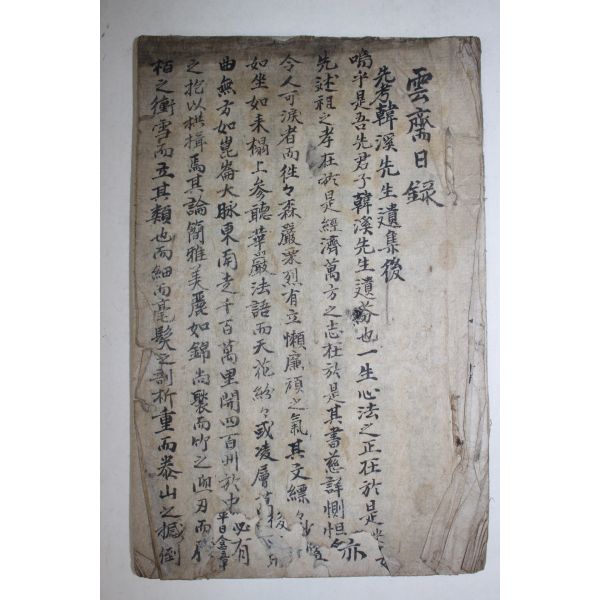 雲齋日錄
先考韓溪先生遺集後
嗚乎是吾先君子韓溪先生遺芬也一生心法之正在於是
先述祖之孝在於是經濟萬方之志在於是其書慈詳惻怛亦
令人可淚者而徃々森嚴栗烈有立懶廉頑之氣其文縹々
如坐如来榻上參聽華嚴法語而天花紛々或凌層
曲無方如崑崙大脉東南走千百萬里開四百州於中必有
之抱以栱楫焉其論簡雅美麗如錦尚褧而竹之迎刃而
栢之衝雪而立其類也而細而毫髮之剖析重而泰山之掀倒